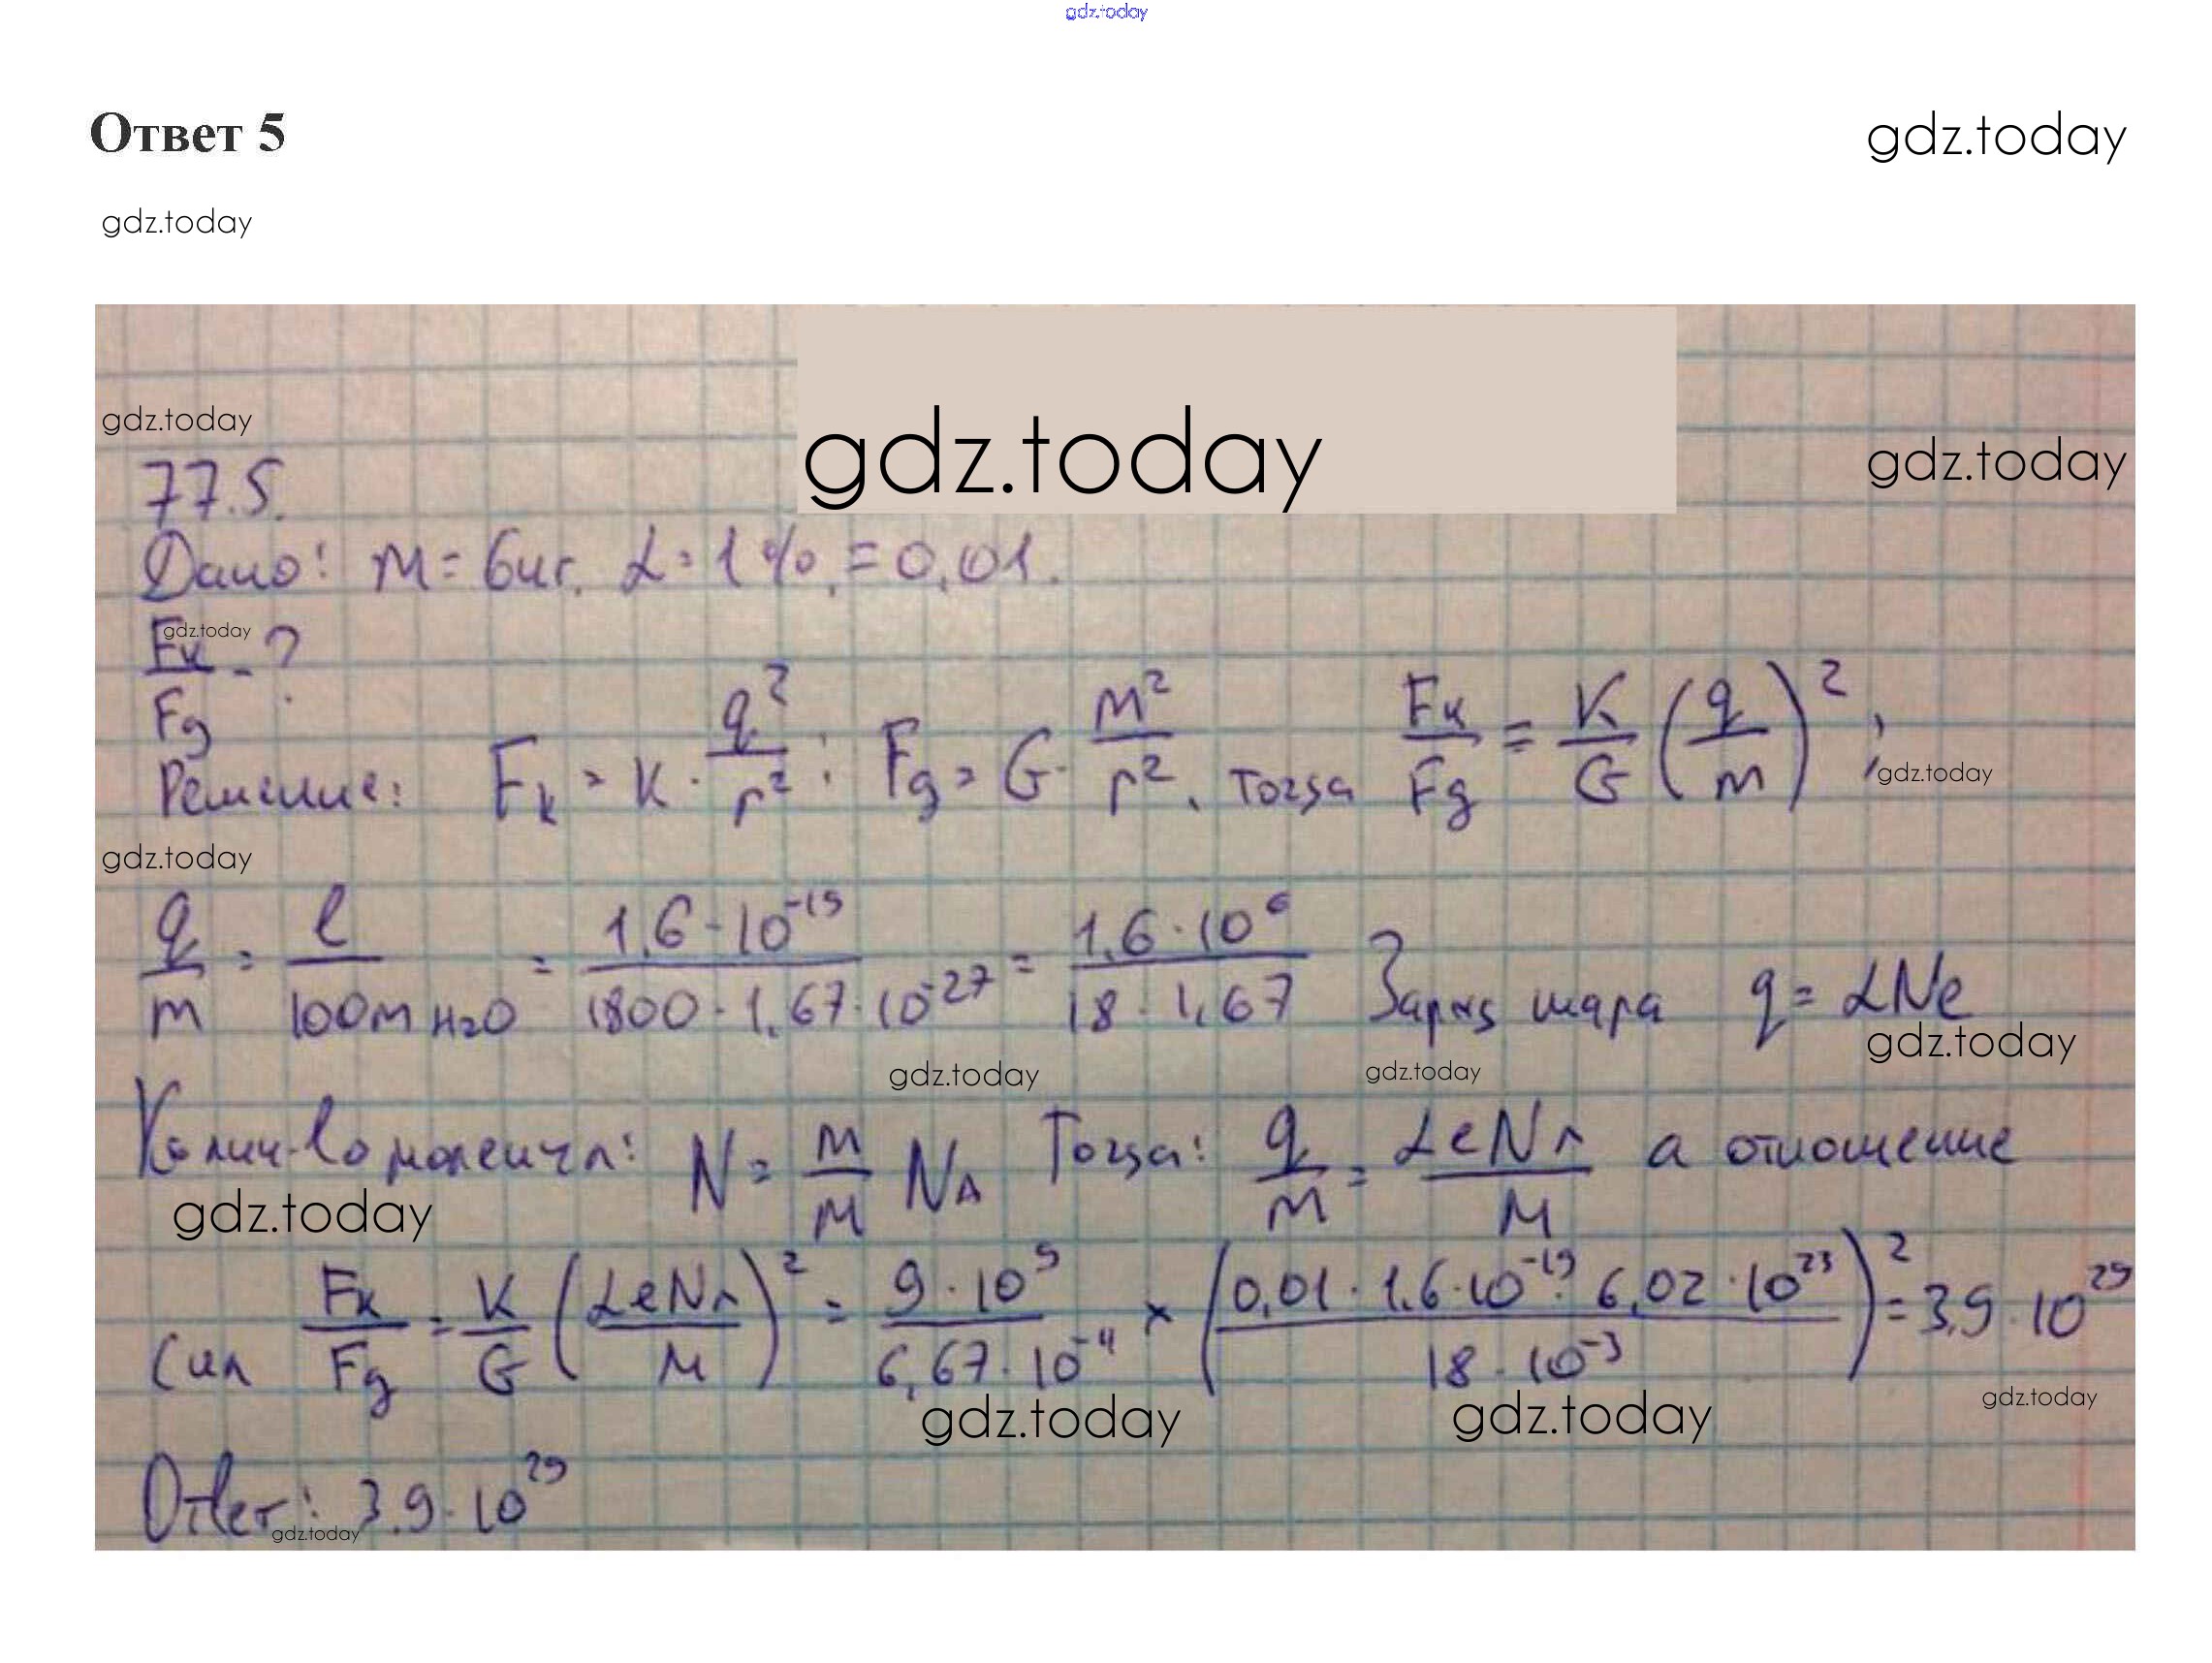 gdz.today
Ответ 5
gdz.today
gdz.today
gdz.today
gdz.today
gdz.today
77.5.
Дано: m = 6 кг. α = 1% = 0,01.
gdz.today
Fк/Fg - ?
Решение: Fк = k · q²/r² ; Fg = G · m²/r². тогда Fк/Fg = K/G (q/m)² ;
gdz.today
gdz.today
q/m = e/100m H₂O = 1,6 · 10⁻¹⁹/1800 · 1,67 · 10⁻²⁷ = 1,6 · 10⁶/18 · 1,67 Заряд шара q = αNe
gdz.today
gdz.today
gdz.today
Колич-во молекул: N = m/M Nᴀ Тогда: q/m = αeNᴀ/M а отношение
gdz.today
сил Fк/Fg = K/G (αeNᴀ/M)² = 9 · 10⁹/6,67 · 10⁻¹¹ × (0,01 · 1,6 · 10⁻¹⁹ · 6,02 · 10²³/18 · 10⁻³)² = 3,9 · 10²⁹
gdz.today
gdz.today
gdz.today
Ответ: 3,9 · 10²⁹
gdz.today